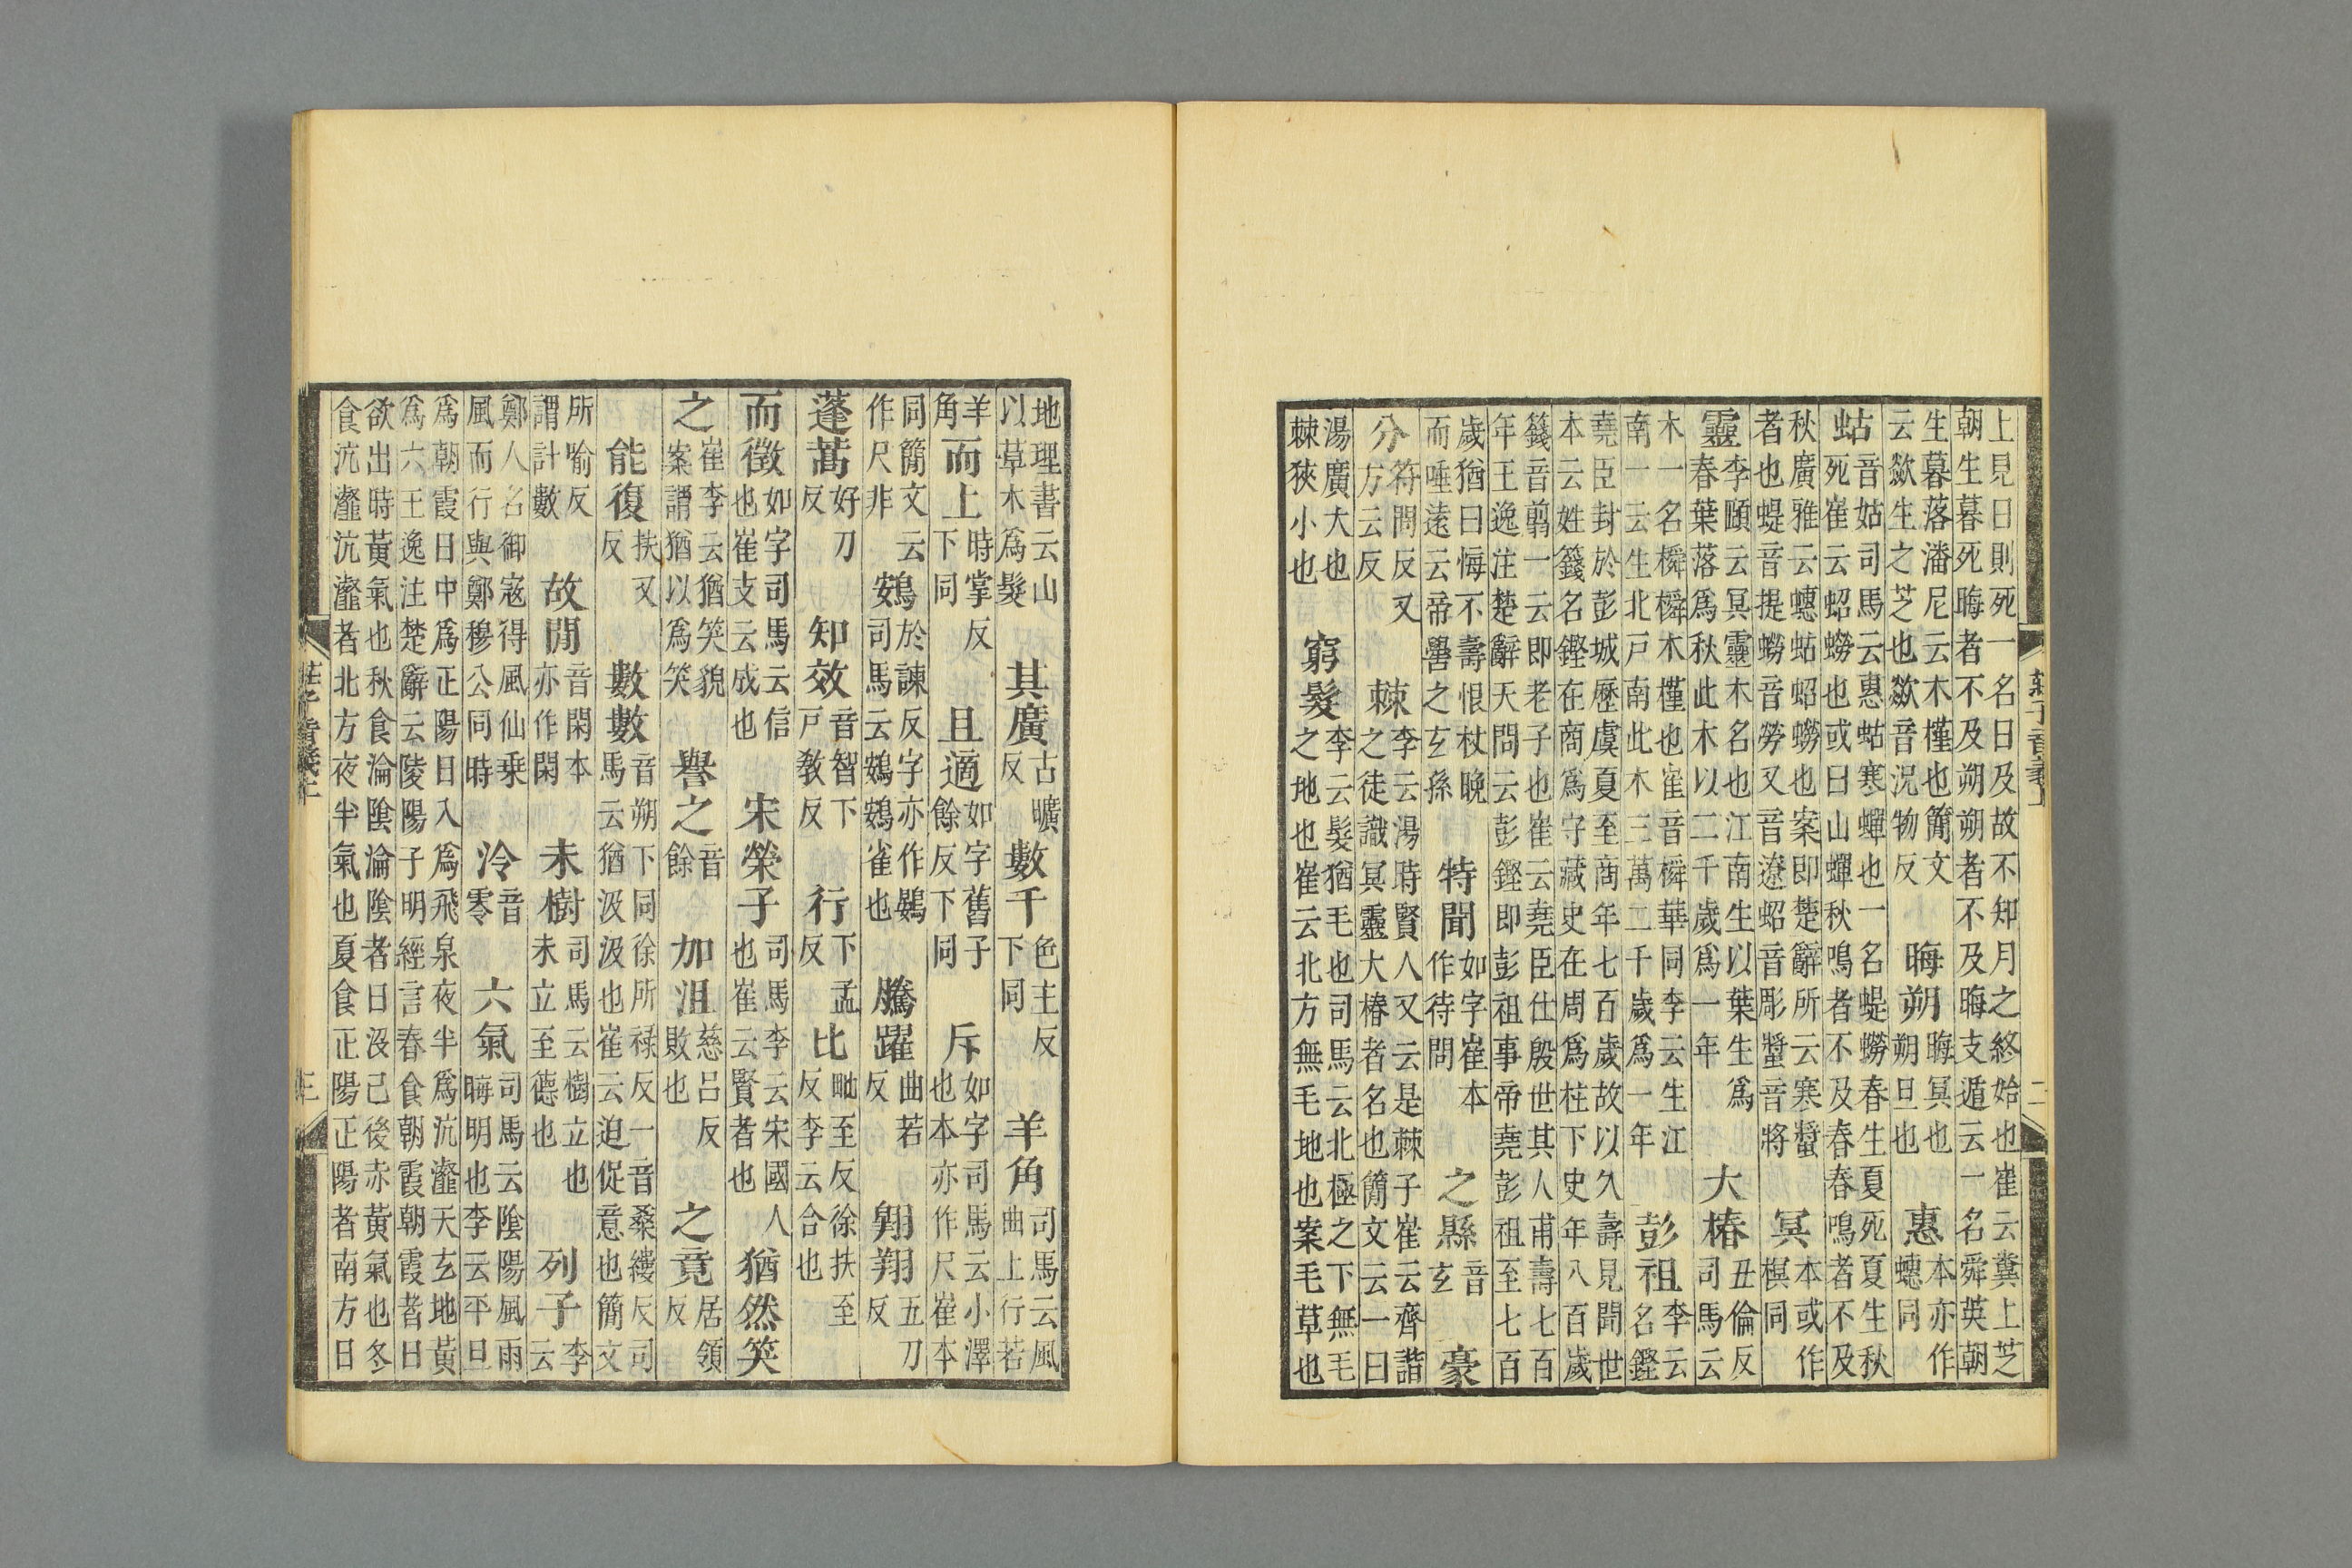 莊子音義上　二
上見日則死一名日及故不知月之終始也崔云糞上芝
朝生暮死晦者不及朔朔者不及晦支遁云一名舜英朝
生暮落潘尼云木槿也簡文云歘生之芝也歘音況物反　晦朔晦冥也朔旦也　惠本亦作蟪同
蛄音姑司馬云惠蛄寒蟬也一名蝭蟧春生夏死夏生秋死崔云蛁蟧也或曰山蟬秋鳴者不及春春鳴者不及
秋廣雅云蟪蛄蛁蟧也案即楚辭所云寒螀者也蝭音提蟧音勞又音遼蛁音彫螀音將　冥本或作榠同
靈李頤云冥靈木名也江南生以葉生爲春葉落爲秋此木以二千歲爲一年　大椿丑倫反司馬云
木一名橓橓木槿也崔音橓華同李云生江南一云生北戸南此木三萬二千歲爲一年　彭祖李云名鏗
堯臣封於彭城歷虞夏至商年七百歲故以久壽見聞世
本云姓籛名鏗在商爲守藏史在周爲柱下史年八百歲
籛音翦一云即老子也崔云堯臣仕殷世其人甫壽七百
年王逸注楚辭天問云彭鏗即彭祖事帝堯彭祖至七百
歲猶曰悔不壽恨杖晚而唾遠云帝嚳之玄孫　特聞如字崔本作待問　之縣音玄　豪
分符問反又方云反　棘李云湯時賢人又云是棘子崔云齊諧之徒識冥靈大椿者名也簡文云一曰
湯廣大也棘狹小也　窮髮李云髮猶毛也司馬云北極之下無毛之地也崔云北方無毛地也案毛草也
地理書云山以草木爲髮　其廣古曠反　數千色主反下同　羊角司馬云風曲上行若
羊角　而上時掌反下同　且適如字舊子餘反下同　斥如字司馬云小澤也本亦作尺崔本
同簡文云作尺非　鴳於諫反字亦作鷃司馬云鴳鴳雀也　騰躍曲若反　翱翔五刀反
蓬蒿好刀反　知效音智下戸教反　行下孟反　比毗至反徐扶至反李云合也
而徵如字司馬云信也崔支云成也　宋榮子司馬李云宋國人也崔云賢者也　猶然笑
之崔李云猶笑貌案謂猶以爲笑　譽之音餘　加沮慈呂反敗也　之竟居領反
能復扶又反　數數音朔下同徐所祿反一音桑縷反司馬云猶汲汲也崔云迫促意也簡文
所喻反謂計數　故閒音閑本亦作閑　未樹司馬云樹立也未立至德也　列子李云
鄭人名御寇得風仙乗風而行與鄭穆公同時　泠音零　六氣司馬云陰陽風雨晦明也李云平旦
爲朝霞日中爲正陽日入爲飛泉夜半爲沆瀣天玄地黃
爲六王逸注楚辭云陵陽子明經言春食朝霞朝霞者日
欲出時黃氣也秋食淪陰淪陰者日沒已後赤黃氣也冬
食沆瀣沆瀣者北方夜半氣也夏食正陽正陽者南方日
莊子音義上　三